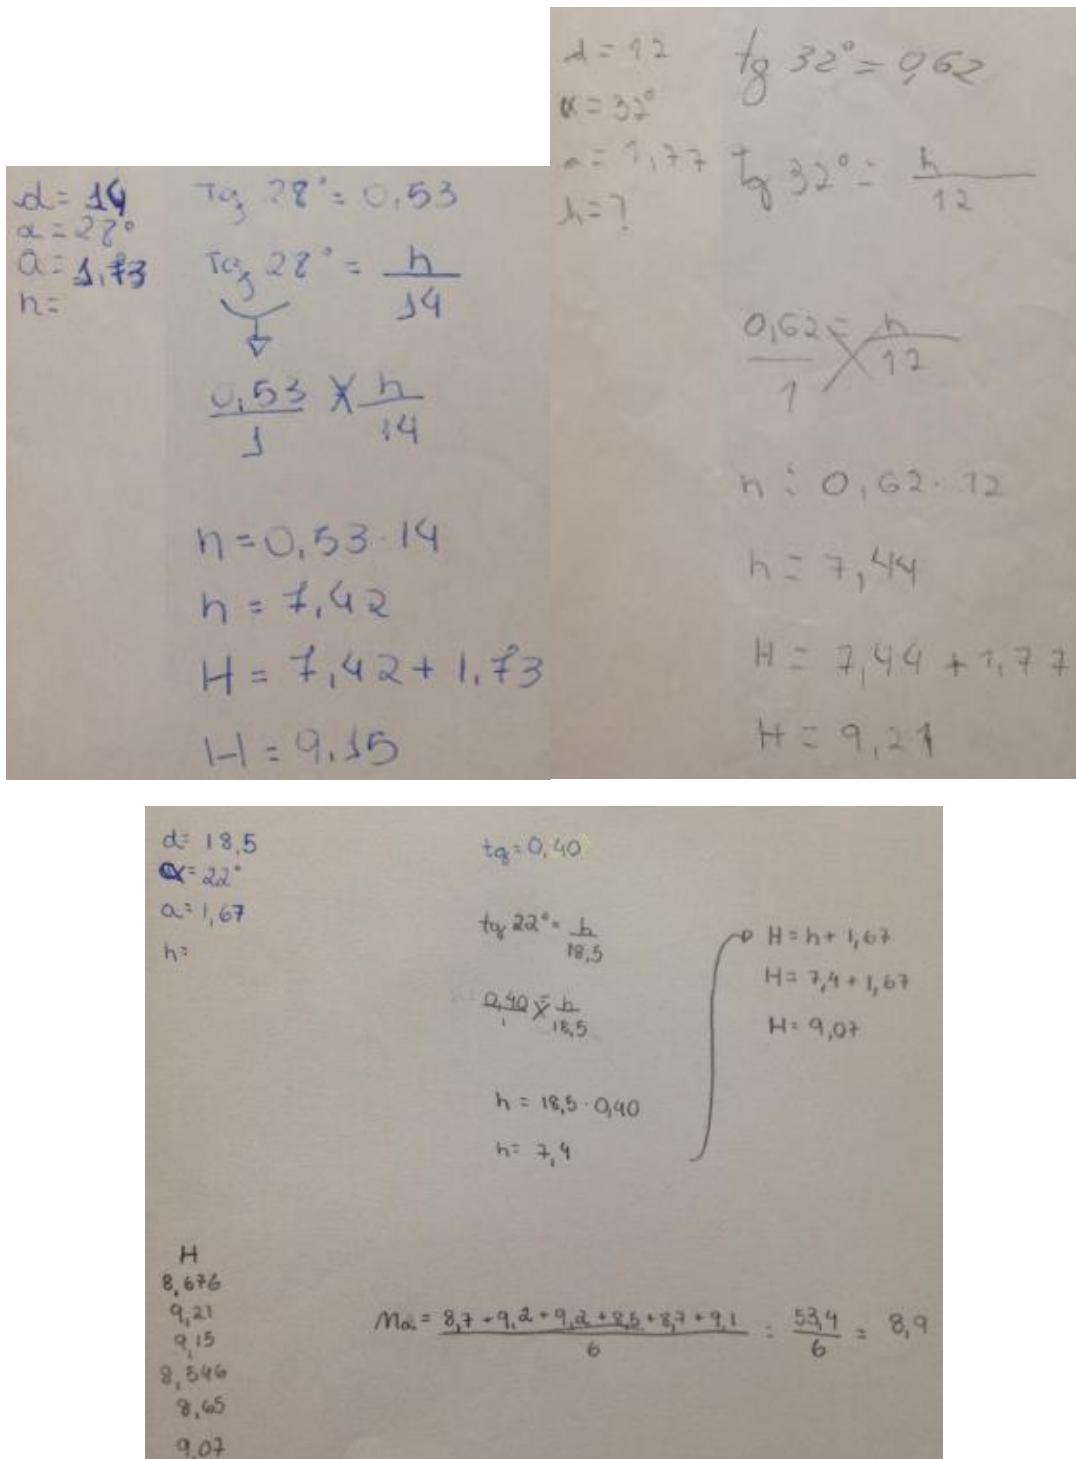 d = 14
α = 28°
a = 1,73
h =
Tg 28° = 0,53
Tg 28° = h
14
0,53 X h
1 14
h = 0,53 · 14
h = 7,42
H = 7,42 + 1,73
H = 9,15
d = 12
α = 32°
a = 1,77
h = ?
tg 32° = 0,62
tg 32° = h
12
0,62 = h
1 12
h = 0,62 · 12
h = 7,44
H = 7,44 + 1,77
H = 9,21
d = 18,5
α = 22°
a = 1,67
h =
tg = 0,40
tg 22° = h
18,5
0,40 = h
1 18,5
h = 18,5 · 0,40
h = 7,4
H = h + 1,67
H = 7,4 + 1,67
H = 9,07
H
8,676
9,21
9,15
8,546
8,65
9,07
Ma = 8,7 + 9,2 + 9,2 + 8,5 + 8,7 + 9,1 = 53,4 = 8,9
6 6